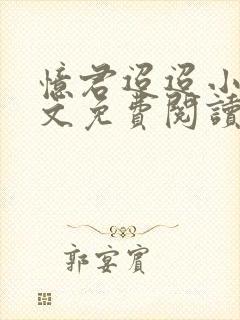 憶君迢迢小
文免費閱讀
郭宴賓